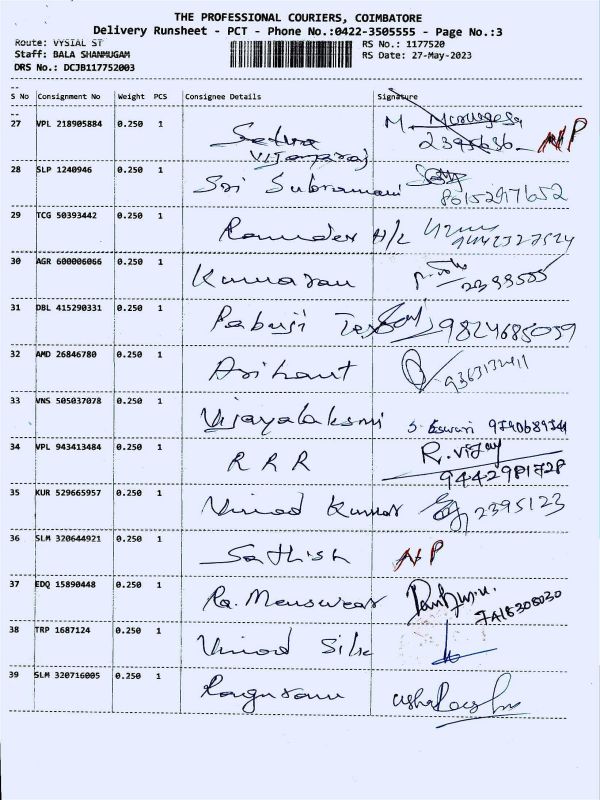 THE PROFESSIONAL COURIERS, COIMBATORE
Delivery Runsheet - PCT - Phone No.:0422-3505555 - Page No.:3
Route: VYSIAL ST
RS No.: 1177520
Staff: BALA SHANMUGAM
RS Date: 27-May-2023
DRS No.: DCJB117752003
S No Consignment No Weight PCS Consignee Details Signature
27 VPL 218905884 0.250 1 M. Murugesa
2395636 NP
28 SLP 1240946 0.250 1 Sri Subramani
29 TCG 50393442 0.250 1 Ramdev H/L
30 AGR 600006066 0.250 1 Kumaran
31 DBL 415290331 0.250 1 Pabuji Tex 9824685059
32 AMD 26846780 0.250 1 Arihant
33 VNS 505037078 0.250 1 Vijayalaksmi S. Eswari
34 VPL 943413484 0.250 1 R R R R. Vijay
9442981728
35 KUR 529665957 0.250 1 Vinod Kumar 2395123
36 SLM 320644921 0.250 1 Sathish NP
37 EDQ 15890448 0.250 1 Ra. Menswear
38 TRP 1687124 0.250 1 Vinod Silk
39 SLM 320716005 0.250 1 Raguram